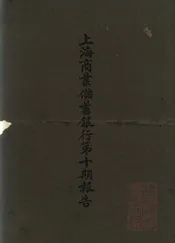 上海商業儲蓄銀行第十期報告